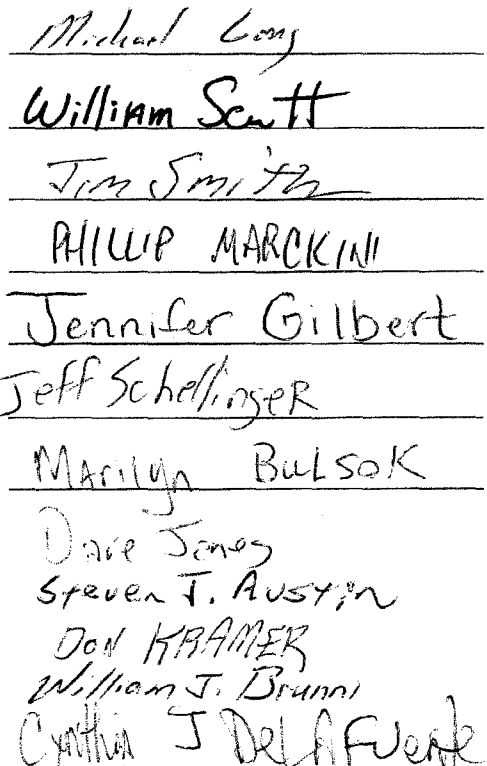 Michael Long
William Scott
Jim Smith
PHILLIP MARCKINI
Jennifer Gilbert
Jeff SchellingeR
MArilyn BULSOK
Dave Jones
Steven J. Austin
DON KRAMER
William J. Brunni
Cynthia J DeLAFuente